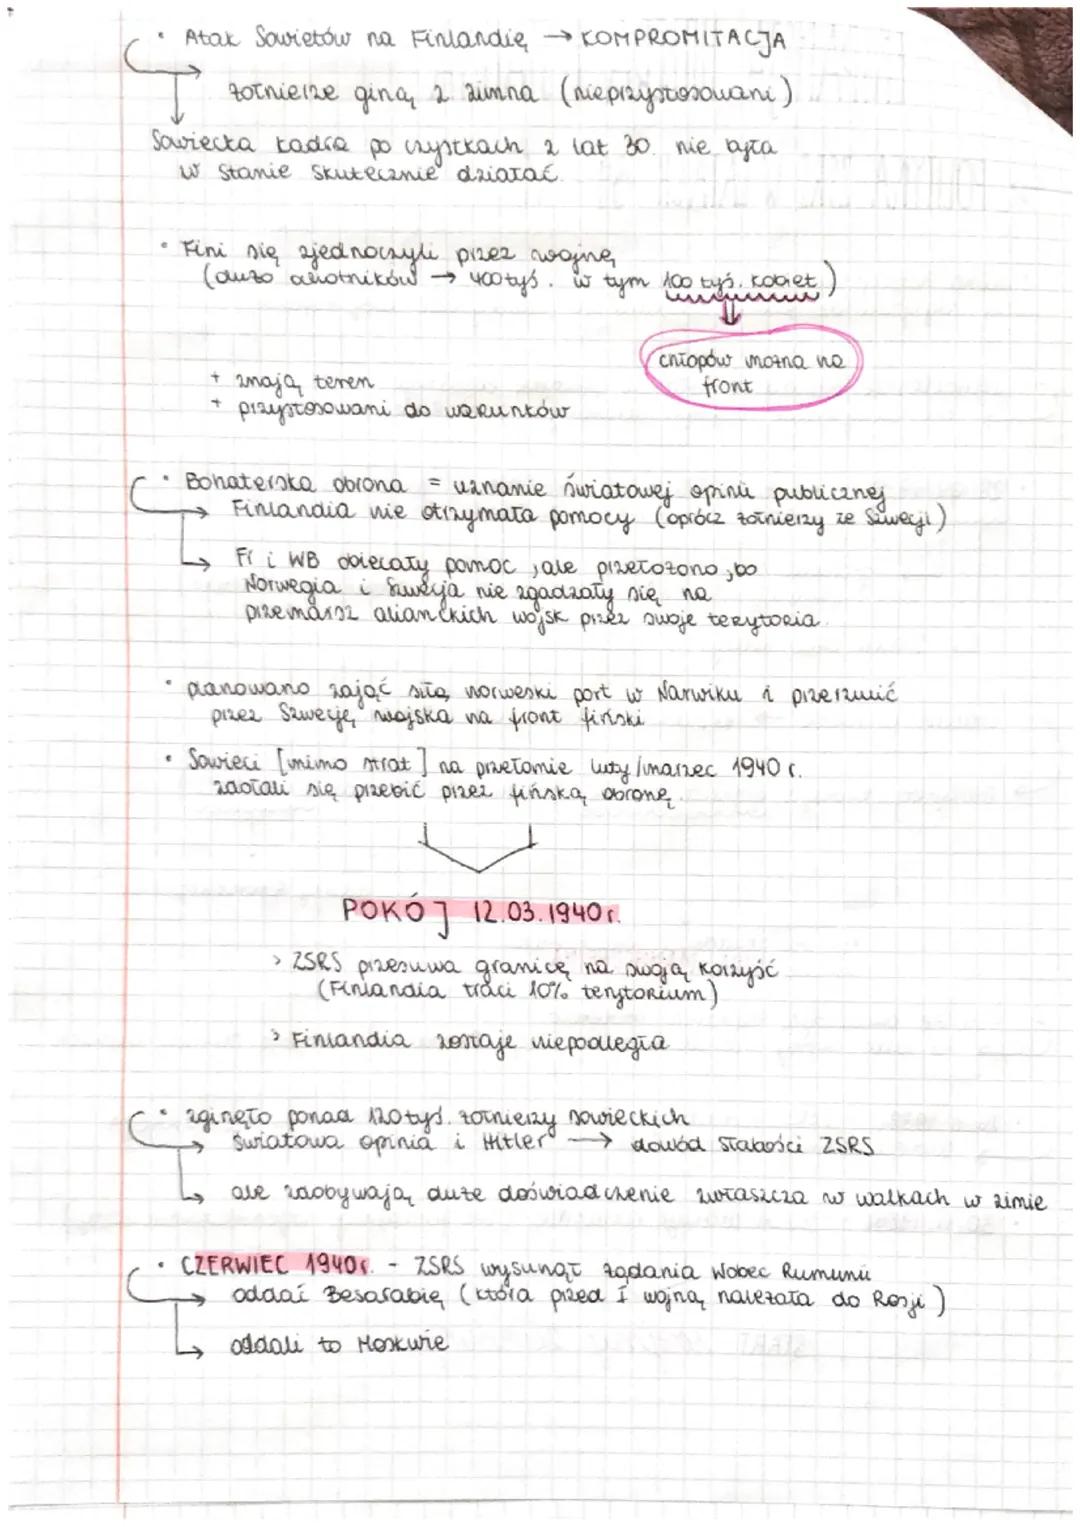 • Atak Sowietów na Finlandię → KOMPROMITACJA
żołnierze giną z zimna (nieprzystosowani)
Sowiecka kadra po czystkach z lat 30. nie była
w stanie skutecznie działać.
• Fini się zjednoczyli przez wojnę
(dużo ochotników → 400 tyś. w tym 100 tyś. kobiet)
chłopów można na
front
+ znają teren
+ przystosowani do warunków
• Bohaterska obrona = uznanie światowej opinii publicznej
Finlandia nie otrzymała pomocy (oprócz żołnierzy ze Szwecji)
Fr i WB obiecały pomoc, ale przełożono, bo
Norwegia i Szwecja nie zgadzały się na
przemarsz alianckich wojsk przez swoje terytoria.
• planowano zająć siłą norweski port w Narwiku i przerzucić
przez Szwecję wojska na front fiński
• Sowieci [mimo strat] na przełomie luty/marzec 1940 r.
zdołali się przebić przez fińską obronę.
POKÓJ 12.03.1940r.
> ZSRS przesuwa granicę na swoją korzyść
(Finlandia traci 10% terytorium)
> Finlandia zostaje niepodległa
• zginęło ponad 120 tyś. żołnierzy sowieckich
światowa opinia i Hitler → dowód słabości ZSRS
ale zdobywają duże doświadczenie zwłaszcza w walkach w zimie
• CZERWIEC 1940r. - ZSRS wysunął żądania wobec Rumunii
oddać Besarabię (która przed I wojną należała do Rosji)
oddali to Moskwie